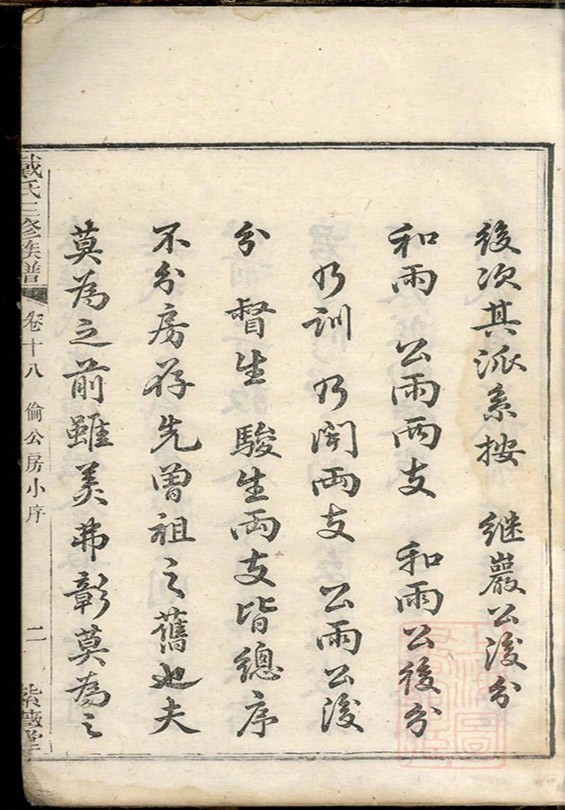 後次其派系按 继巖公後分
和雨 公雨兩支 和雨公後分
乃訓 乃開兩支 公雨公後
分 督生 駿生兩支皆總序
不分房存先曾祖之舊也夫
莫為之前雖美弗彰莫為之
戴氏三修族譜 卷十八 倫公房小序 二